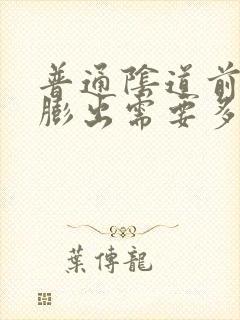 普通陰道前
膨出需要多
葉傳龍